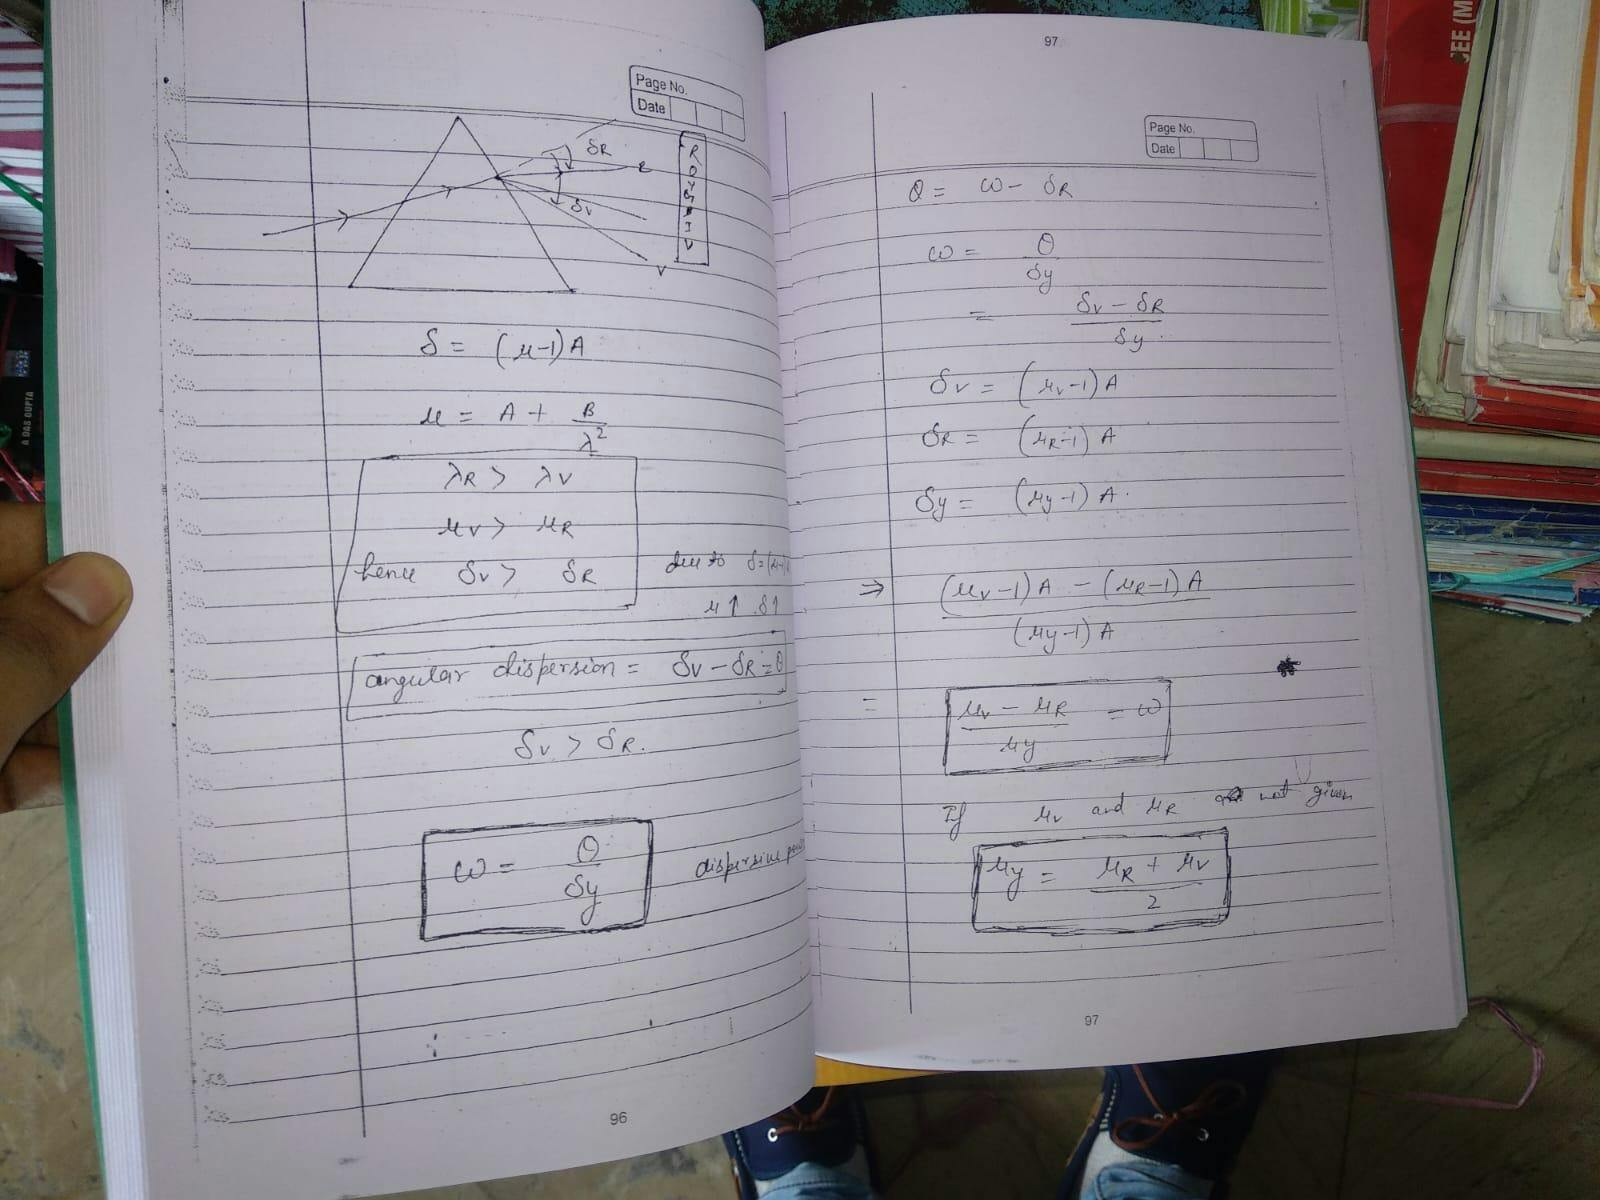 Page No.
Date
δR
R
δV
V
R
O
Y
G
B
I
V
δ = (μ-1)A
μ = A + B/λ²
λR > λV
μV > μR
hence δV > δR
due to δ=(μ-1)
μ↑ δ↑
angular dispersion = δV - δR = θ
δV > δR.
ω = θ/δy
dispersive
96
97
Page No.
Date
θ = ω - δR
ω = θ/δy
= (δV - δR)/δy.
δV = (μV-1)A
δR = (μR-1)A
δy = (μy-1)A.
⇒ ((μV-1)A - (μR-1)A)/((μy-1)A)
= (μV - μR)/μy = ω
If μV and μR are not given
μy = (μR + μV)/2
97
A DAS GUPTA
CEE (M